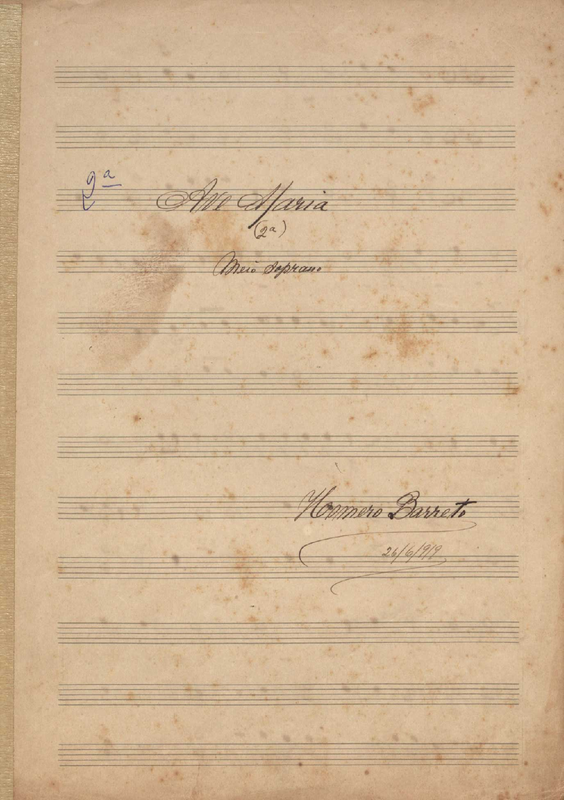 2ª
Ave Maria
(2ª)
Meio soprano
Homero Barreto
26/6/919